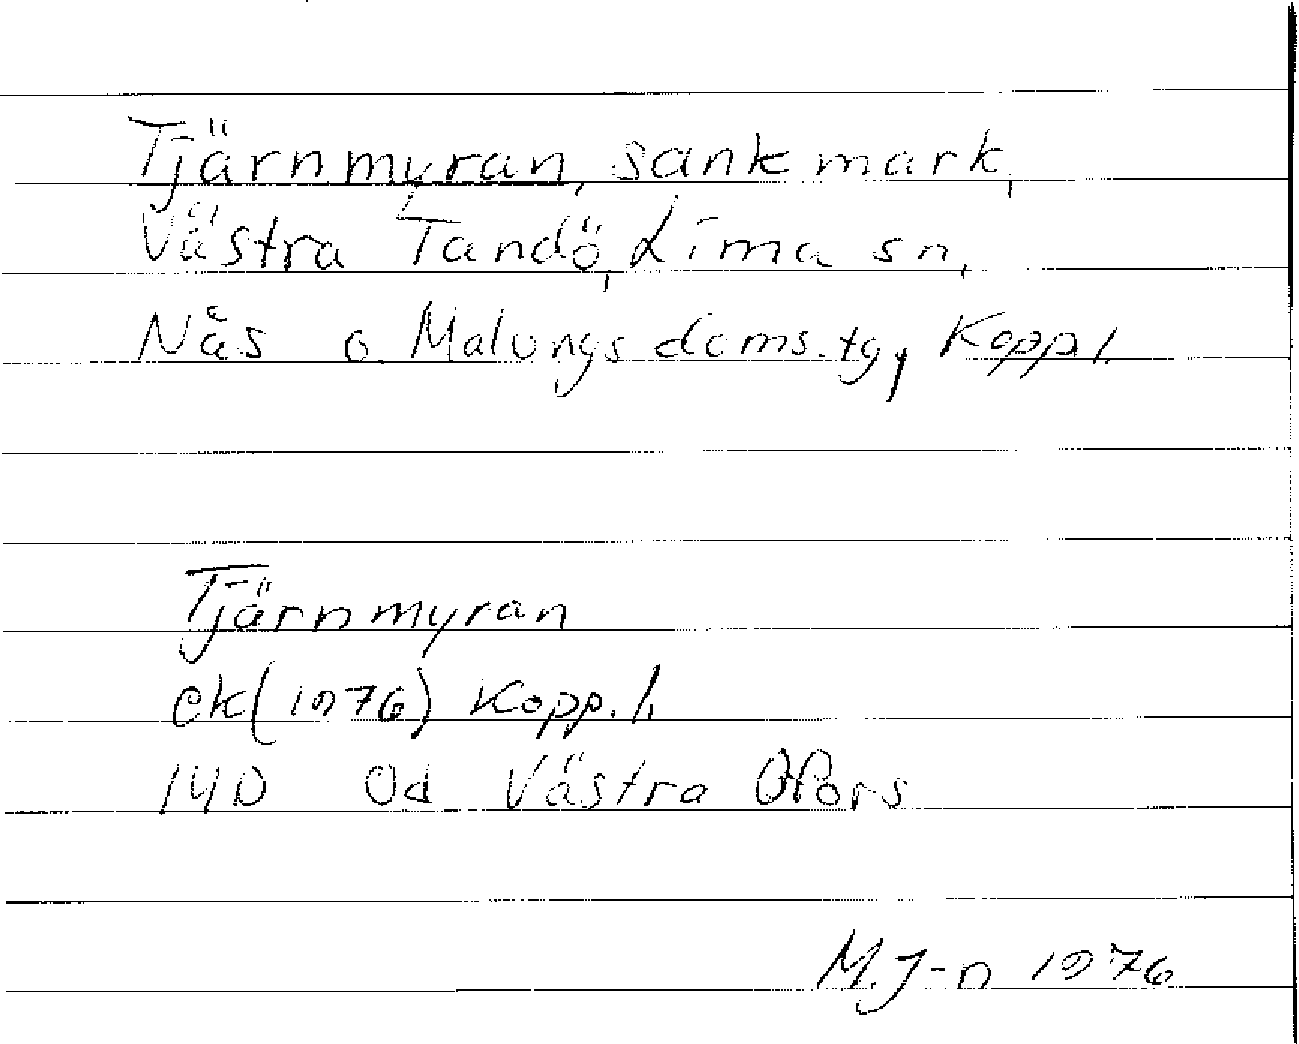 Tjärnmyran, sank mark,
Västra Tandö, Lima sn,
Nås o. Malungs doms.tg, Kopp.l.
Tjärnmyran
ek(1976) Kopp.l.
14D 0d Västra Ofors
M.J-n 1976